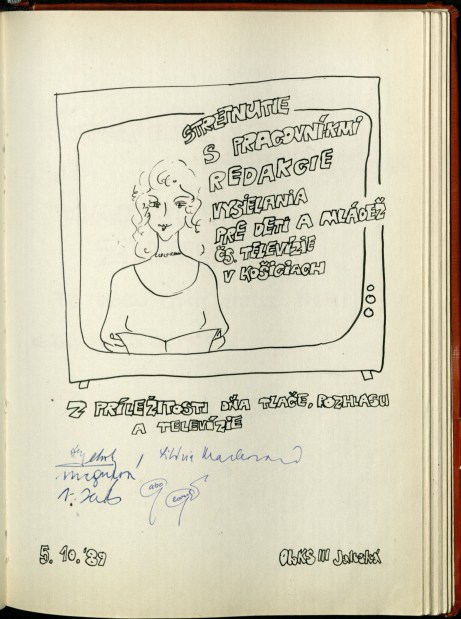 STRETNUTIE
S PRACOVNÍKMI
REDAKCIE
VYSIELANIA
PRE DETI A MLÁDEŽ
ČS. TELEVÍZIE
V KOŠICIACH
Z PRÍLEŽITOSTI DŇA TLAČE, ROZHLASU
A TELEVÍZIE
5. 10. '89
ObKS III